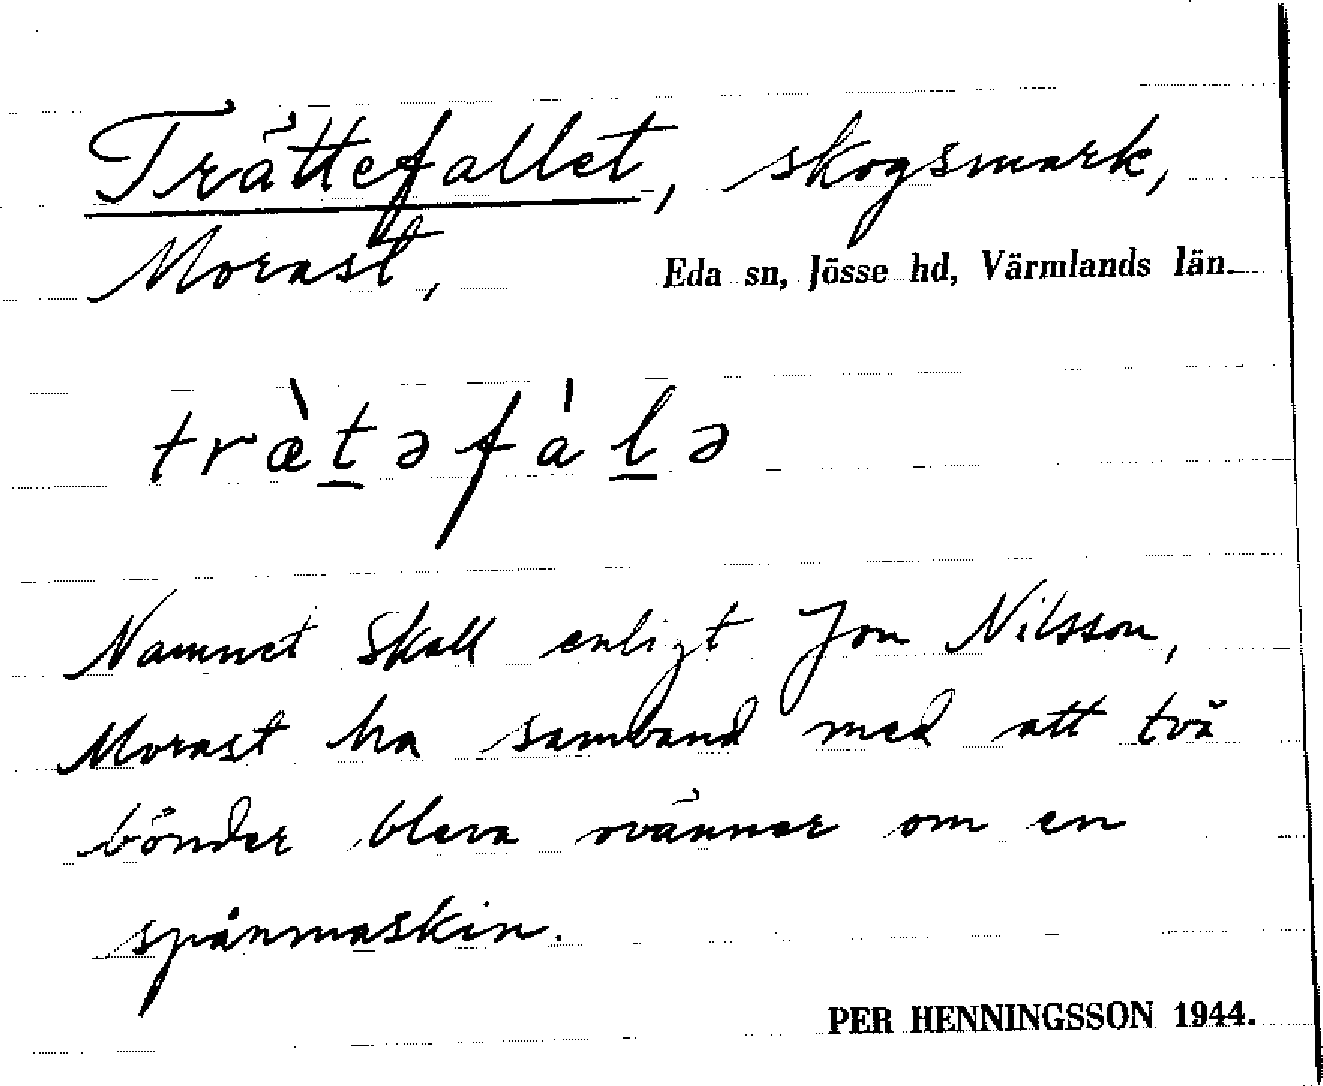 Trättefallet, skogsmark,
Morast, Eda sn, Jösse hd, Värmlands län.
træ̀t̲əfál̲ə
Namnet skall enligt Jon Nilsson,
Morast ha samband med att två
bönder bleva ovänner om en
spånmaskin.
PER HENNINGSSON 1944.